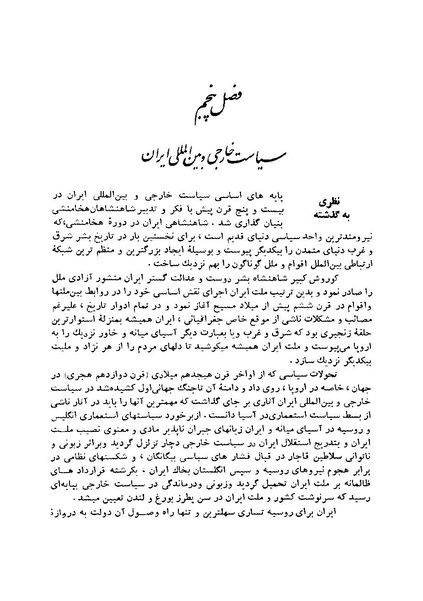 فصل پنجم
سیاست خارجی و بین‌المللی ایران
نظری
به گذشته
پایه های اساسی سیاست خارجی و بین‌المللی ایران در
بیست و پنج قرن پیش با فکر و تدبیر شاهنشاهان هخامنشی
بنیان گذاری شد . شاهنشاهی ایران در دورهٔ هخامنشی، که
نیرومندترین واحد سیاسی دنیای قدیم است ، برای نخستین بار در تاریخ بشر شرق
و غرب دنیای متمدن را بیکدیگر پیوست و بوسیلهٔ ایجاد بزرگترین و منظم ترین شبکهٔ
ارتباطی بین‌الملل اقوام و ملل گوناگون را بهم نزدیك ساخت .
کوروش کبیر شاهنشاه بشر دوست و عدالت گستر ایران منشور آزادی ملل
را صادر نمود و بدین ترتیب ملت ایران اجرای نقش اساسی خود را در روابط بین‌ملتها
واقوام در قرن ششم پیش از میلاد مسیح آغاز نمود و در تمام ادوار تاریخ ، علیرغم
مصائب و مشکلات ناشی از موقع خاص جغرافیائی ، ایران همیشه بمنزلهٔ استوارترین
حلقهٔ زنجیری بود که شرق و غرب ویا بعبارت دیگر آسیای میانه و خاور نزدیك را به
اروپا می‌پیوست و ملت ایران همیشه میکوشید تا دلهای مردم را از هر نژاد و ملیت
بیکدیگر نزدیك سازد .
تحولات سیاسی که از اواخر قرن هیجدهم میلادی (قرن دوازدهم هجری) در
جهان ، خاصه در اروپا ، روی داد و دامنهٔ آن تاجنگ جهانی‌اول کشیده‌شد در سیاست
خارجی و بین‌المللی ایران آثاری بر جای گذاشت که مهمترین آنها را باید در آثار ناشی
از بسط سیاست استعماری‌در آسیا دانست . ازبرخورد سیاستهای استعماری انگلیس
و روسیه در آسیای میانه و ایران زیانهای جبران ناپذیر مادی و معنوی نصیب ملت
ایران و بتدریج استقلال ایران در سیاست خارجی دچار تزلزل گردید وبراثر زبونی و
ناتوانی سلاطین قاجار در قبال فشار های سیاسی بیگانگان ، و شکستهای نظامی در
برابر هجوم نیروهای روسیه و سپس انگلستان بخاك ایران ، یکرشته قرارداد های
ظالمانه بر ملت ایران تحمیل گردید وزبونی ودرماندگی در سیاست خارجی بپایه‌ای
رسید که سرنوشت کشور و ملت ایران در سن پطرز بورغ و لندن تعیین میشد .
ایران برای روسیه تساری سهلترین و تنها راه وصول آن دولت به دروازهٔ